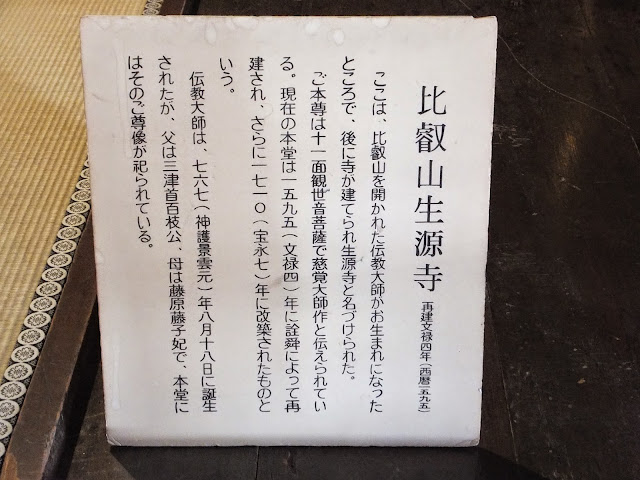 比叡山生源寺 再建文禄四年(西暦一五九五)
ここは、比叡山を開かれた伝教大師がお生まれになった
ところで、後に寺が建てられ生源寺と名づけられた。
ご本尊は十一面観世音菩薩で慈覚大師作と伝えられてい
る。現在の本堂は一五九五(文禄四)年に詮舜によって再
建され、さらに一七一〇(宝永七)年に改築されたものと
いう。
伝教大師は、七六七(神護景雲元)年八月十八日に誕生
されたが、父は三津首百枝公、母は藤原藤子妃で、本堂に
はそのご尊像が祀られている。